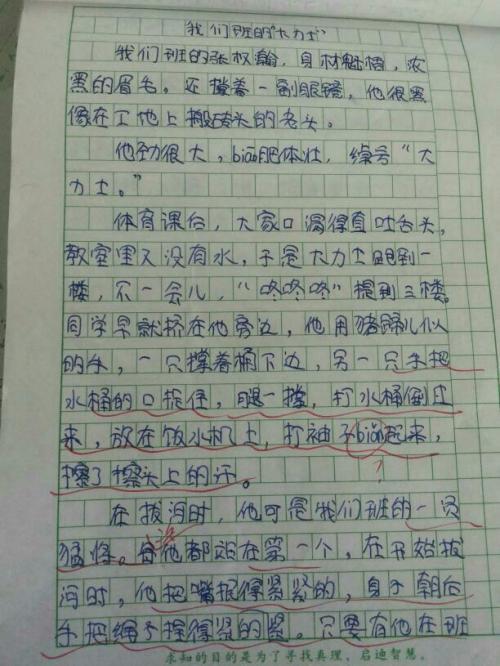 我们班的"大力士"
我们班的张权瀚,身材魁梧,浓
黑的眉毛。还撑着一副眼镜,他很黑
像在工地上搬砖头的老头。
他劲很大,biāo肥体壮,绰号"大
力士。"
体育课后,大家口渴得直吐舌头,
教室里又没有水,于是大力士跑到一
楼,不一会儿,"咚咚咚"提到三楼。
同学早就挤在他旁边,他用猪蹄儿似
的手,一只撑着桶下边,另一只手把
水桶的口抓住,腿一撑,打水桶倒过
来,放在饮水机上,打袖子biǎn起来,
擦了擦头上的汗。
在拔河时,他可是我们班的一员
猛将。每次他都站在第一个,在开始拔
河时,他把嘴抿得紧紧的,身子朝后
手把绳子握得紧的紧。只要有他在班
求知的目的是为了寻找真理,启迪智慧。